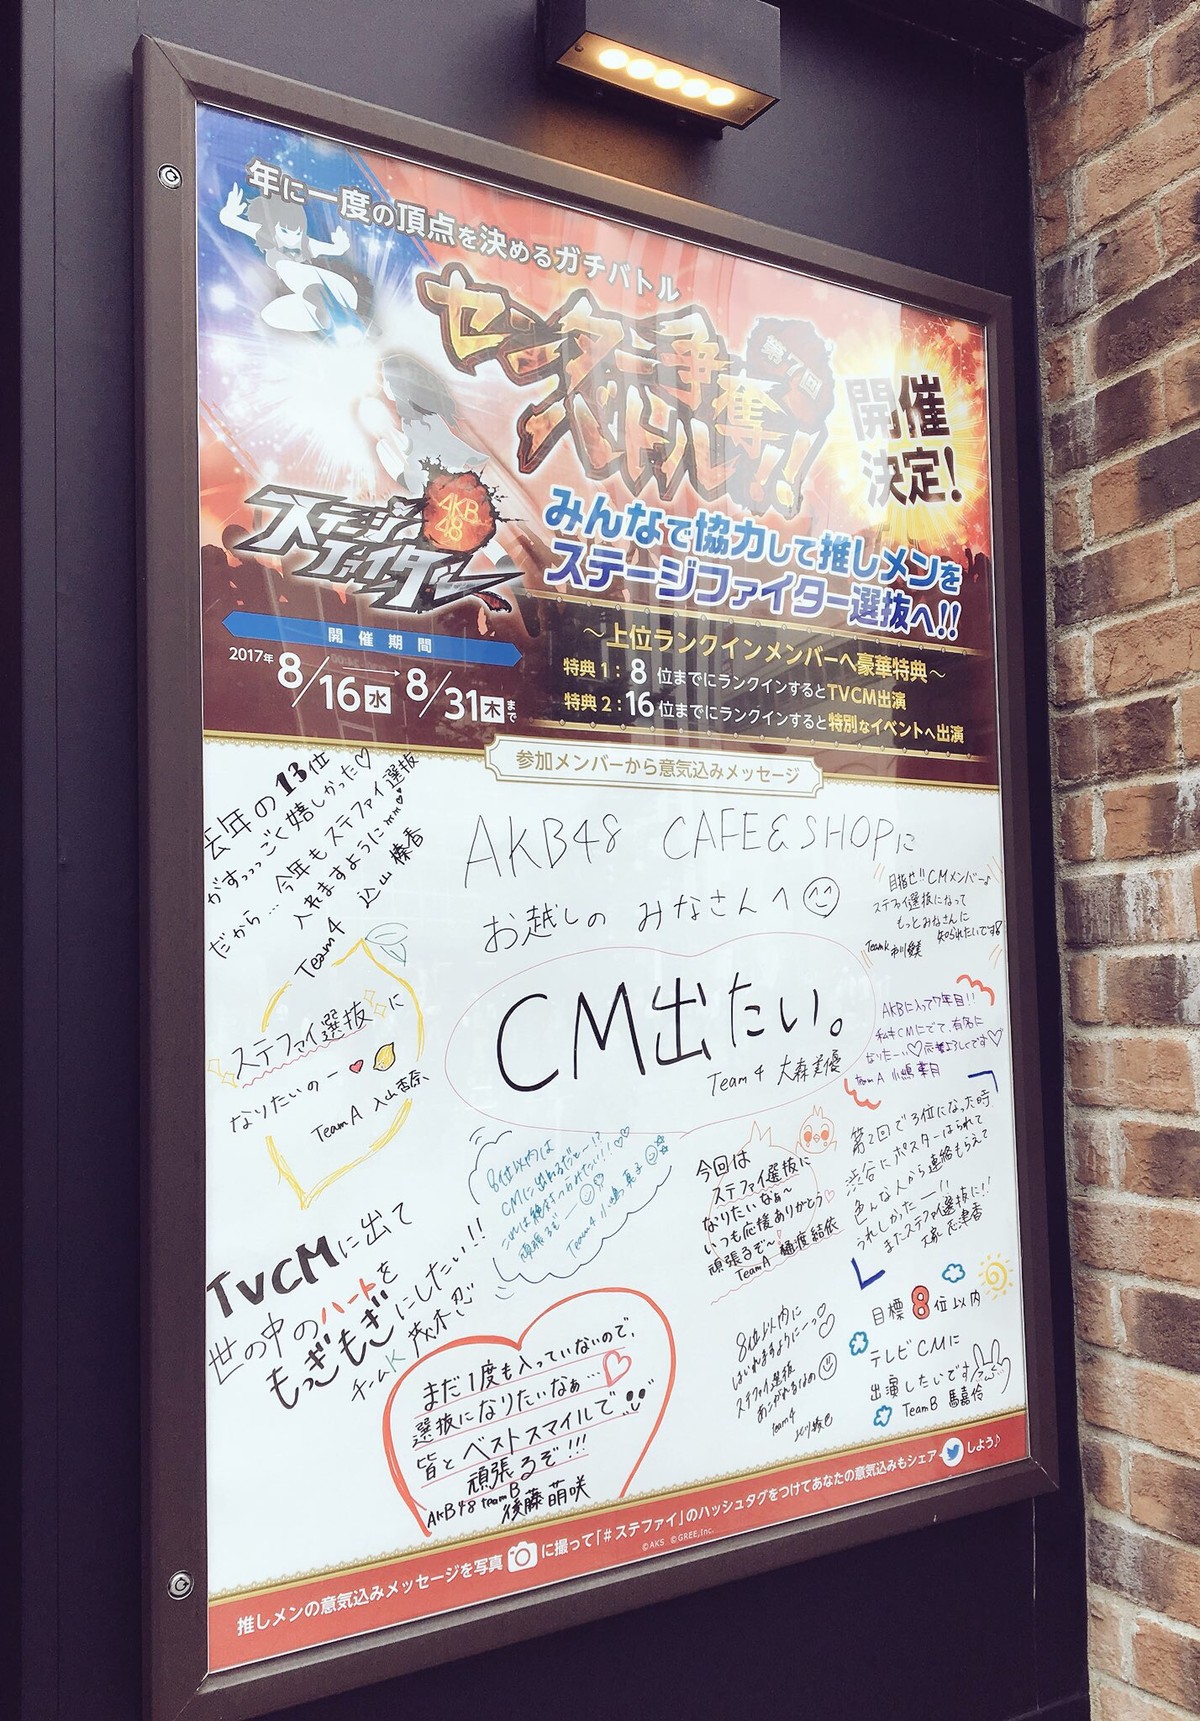 年に一度の頂点を決めるガチバトル
第7回
センター争奪
バトル!!
開催
決定!
AKB
48
ステージ
ファイター
みんなで協力して推しメンを
ステージファイター選抜へ!!
開催期間
2017年 8/16水 → 8/31木まで
～上位ランクインメンバーへ豪華特典～
特典1：8位までにランクインするとTVCM出演
特典2：16位までにランクインすると特別なイベントへ出演
参加メンバーから意気込みメッセージ
去年の13位
がすっっっごく嬉しかった♡
だから…今年もステファイ選抜
入れますようにmm
Team4 込山榛香
AKB48 CAFE&SHOPに
お越しの みなさんへ
CM出たい。
Team4 大森美優
目指せ!!CMメンバー♪
ステファイ選抜になって
もっとみなさんに
知られたいです
TeamK 市川愛美
ステファイ選抜に
なりたいのー
TeamA 入山杏奈
AKBに入って7年目!!
私もCMにでて、有名に
なりたーい♡応援よろしくです♡
team A 小嶋菜月
8位以内は
CMに出れるだとー!?
頑張るぞー
Team4 小嶋真子
今回は
ステファイ選抜に
なりたいなぁ～
いつも応援ありがとう
頑張るぞ～!
TeamA 樋渡結依
第2回で3位になった時
渋谷にポスターはられて
色んな人から連絡もらえて
うれしかったー!!
またステファイ選抜に!!
大家志津香
TVCMに出て
世の中のハートを
もぎもぎにしたい!!
チームK 茂木忍
まだ1度も入っていないので、
選抜になりたいなぁ…♡
皆とベストスマイルで
頑張るぞ!!!
AKB48 teamB
後藤萌咲
8位以内に
はいれますようにーっ♡
ステファイ選抜
あこがれるなの
Team4
目標8位以内
テレビCMに
出演したいです
TeamB 馬嘉伶
推しメンの意気込みメッセージを写真に撮って「#ステファイ」のハッシュタグをつけてあなたの意気込みもシェアしよう♪
©AKS ©GREE,Inc.